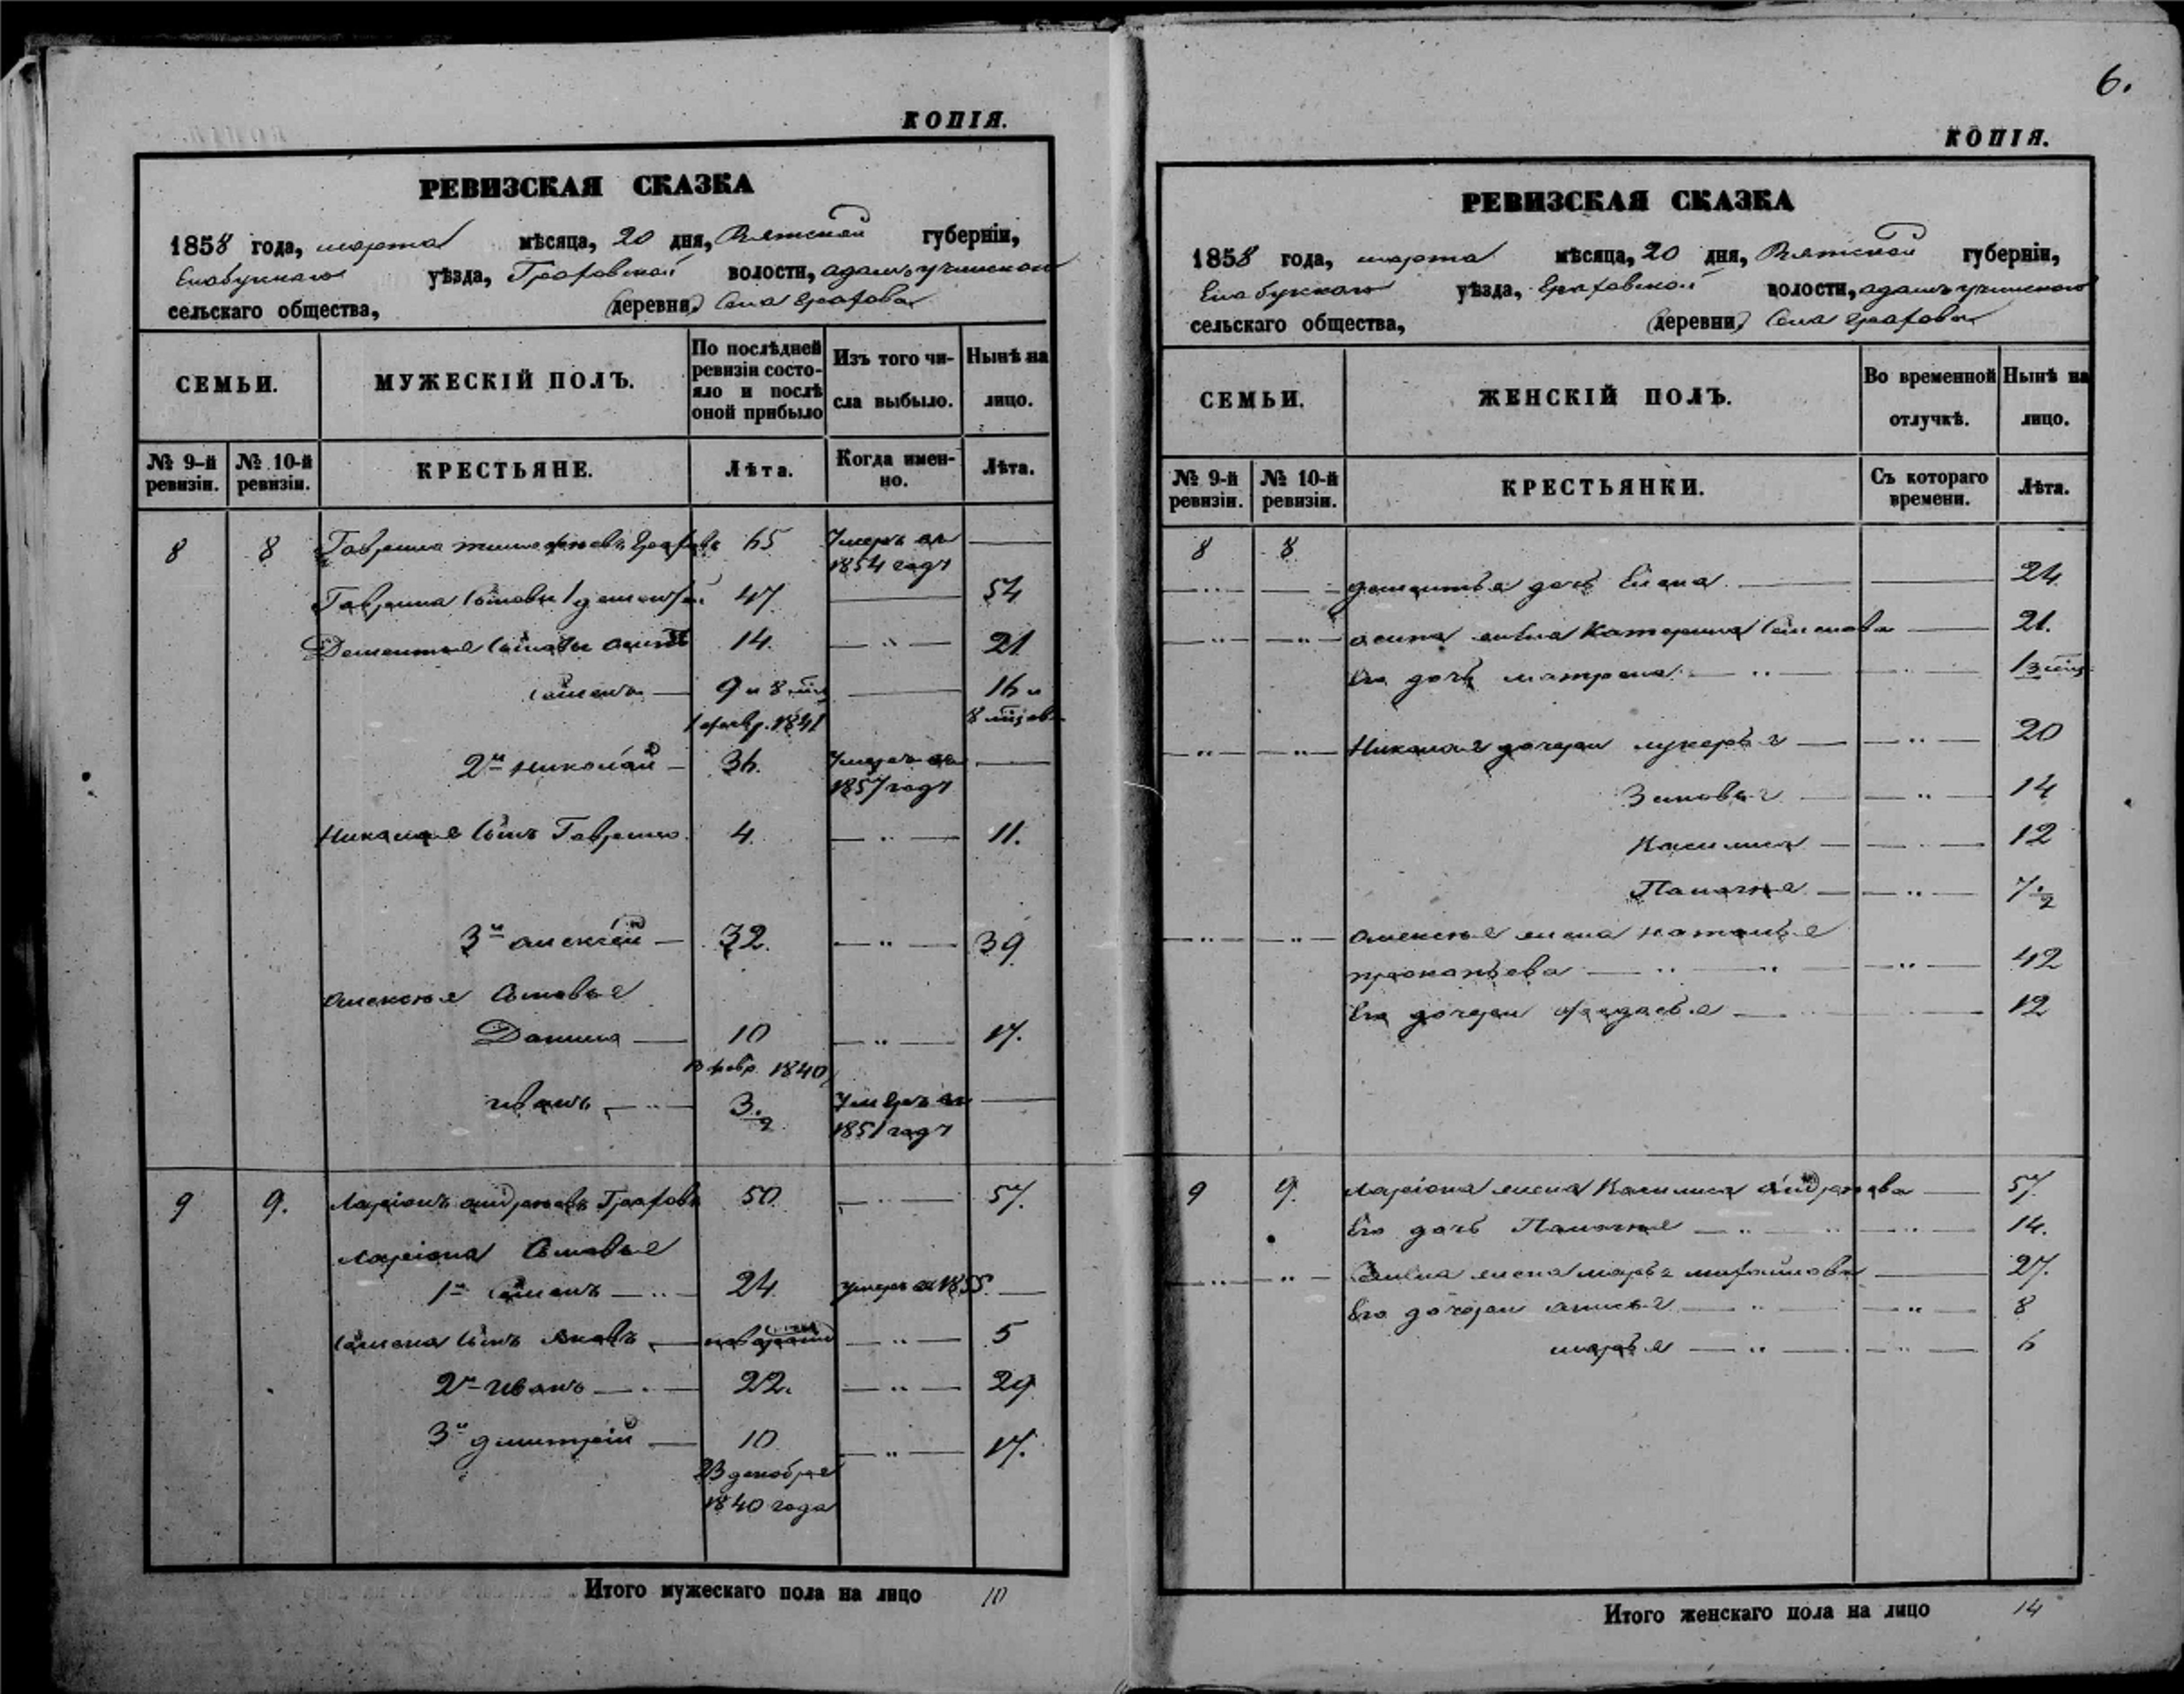 КОПІЯ.
РЕВИЗСКАЯ СКАЗКА
1858 года, марта мѣсяца, 20 дня, Вятской губерніи,
Елабужскаго уѣзда, Граховской волости,
сельскаго общества, (деревни) Села Грахова
СЕМЬИ.
МУЖЕСКІЙ ПОЛЪ.
По послѣдней ревизіи состояло и послѣ оной прибыло
Изъ того числа выбыло.
Нынѣ на лицо.
№ 9-й ревизіи.
№ 10-й ревизіи.
КРЕСТЬЯНЕ.
Лѣта.
Когда именно.
Лѣта.
8 8 Гаврила Граховъ 65 Умеръ въ —
1854 году
Гаврила сыновья 1 47 — 54
Дементья сыновья Осипъ 14. — „ — 21
Семенъ — 9 и 8 — 16 и
1841 8
2й Николай — 36. Умеръ въ —
1857 году
Николая сынъ Гаврило. 4. — „ — 11.
3й Алексѣй — 32. — „ — 39
Алексѣя сыновья
Данило — 10 — „ — 17.
февр. 1840
Иванъ — „ — 3 ½ Умеръ въ —
1851 году
9 9. Ларіонъ Андреевъ Граховъ 50. — „ — 57.
Ларіона сыновья
1й Семенъ — „ — 24 умеръ въ 1855. —
Семена сынъ Яковъ — — „ — 5
2й Иванъ — „ — 22. — „ — 29
3й Дмитрій — 10 — „ — 17.
23 декабря
1840 года
Итого мужескаго пола на лицо 10
6.
КОПІЯ.
РЕВИЗСКАЯ СКАЗКА
1858 года, марта мѣсяца, 20 дня, Вятской губерніи,
Елабужскаго уѣзда, Граховской волости,
сельскаго общества, (деревни) Села Грахова
СЕМЬИ.
ЖЕНСКІЙ ПОЛЪ.
Во временной отлучкѣ.
Нынѣ на лицо.
№ 9-й ревизіи.
№ 10-й ревизіи.
КРЕСТЬЯНКИ.
Съ котораго времени.
Лѣта.
8 8
Дементья дочь Елена — — 24
Осипа жена Катерина Семенова — 21.
Его дочь Матрена — „ — 3
Николая дочери Лукерья — — „ — 20
Зиновья — — „ — 14
Василиса — — „ — 12
Палагея — — „ — 7 ½
Алексѣя жена Наталья
Прокопьева — „ — „ — 42
Его дочери Федосья — — 12
9 9. Ларіона жена Василиса Андреева — 57.
Его дочь Палагея — „ — 14.
Семена жена Марья Митрофанова — 27.
Его дочери Анисья — „ — „ — 8
Марья — „ — „ — 6
Итого женскаго пола на лицо 14